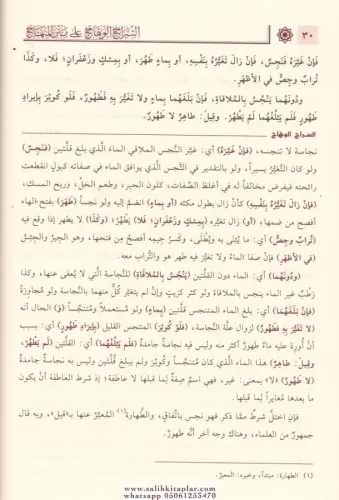 ٣٠
السراج الوهاج على متن المنهاج
فَإِنْ غَيَّرَهُ فَنَجِسٌ، فَإِنْ زَالَ تَغَيُّرُهُ بِنَفْسِهِ، أَو بِمَاءٍ طَهُرَ، أَو بِمِسْكٍ وَزَعْفَرَانٍ، فَلَا، وَكَذَا
تُرابٌ وجِصٌّ في الأظْهَرِ.
وَدُونَهُمَا يَنْجُسُ بِالْمُلاقَاةِ، فَإِنْ بَلَغَهُمَا بِمَاءٍ ولا تَغَيُّرَ بِهِ فَطَهُورٌ، فَلَو كُوثِرَ بِإيرادِ
طَهُورٍ فَلَم يَبْلُغْهُمَا لَمْ يَطْهُرْ. وقِيلَ: طَاهِرٌ لا طَهُورٌ.
السراج الوهاج
نجاسة لا تنجسه، (فَإِنْ غَيَّرَهُ) أي: غيَّر النجس الملاقي الماء الَّذي بلغ قلَّتين (فَنَجِسٌ)
ولو كان التَّغيُّر يسيراً، ولو بالتقدير في النَّجس الَّذي يوافق الماء في صفاته كبول انقطعت
رائحته فيفرض مخالفاً له في أغلظ الصِّفات، كلون الحبر، وطعم الخلِّ، وريح المسك،
(فَإِنْ زَالَ تَغَيُّرُهُ بِنَفْسِهِ) كأنْ زال بطول مكثه (أو بِمَاءٍ) انضمَّ إليه ولو نجساً (طَهُرَ) بفتح الهاء
أفصح من ضمها، (أو) زال تغيره (بِمِسْكٍ وزَعْفَرانٍ، فَلا) يطهُر؛ (وكَذَا) لا يطهر إذا وقع فيه
(تُرابٌ وجِصٌّ) أي: ما يُبنى به ويُطلى، وكسرُ جيمه أفصحُ من فتحها، وهو الجيرُ والجبسُ
(في الأظْهَرِ) فإنْ صفَا الماءُ ولا تغيُّر فيه طهر هو والتُّراب معه.
(وَدُونَهُما) أي: الماء دون القلَّتين (يَنْجُسُ بِالمُلاقَاةِ) للنجاسة الَّتي لا يُعفى عنها، وكذا
رَطْبٌ غير الماء ينجس بالملاقاة ولو كثر كزيت وإن لم يتغيَّر كلٌّ منهما بالنَّجاسة ولو مُجاوَرَةً
(فَإِنْ بَلَغَهُما) أي: بلغ الماء المتنجس قلَّتين (بِماءٍ) ولو مُستعملاً ومُتنجِّساً (و) الحال أنه
(لا تَغَيُّرَ بِهِ فَطَهُورٌ) لزوال علَّة النَّجاسة، (فَلَوْ كُوثِرَ) المتنجس القليل (بِإيرادِ طَهُورٍ) أي: بسبب
أنْ أُورِدَ عليه ماءٌ طهورٌ أكثر منه وليس فيه نجاسةٌ جامدةٌ (فَلَمْ يَبْلُغْهُما) أي: القلَّتين (لَمْ يَطْهُرْ،
وقِيلَ: طاهِرٌ) هذا الماء الَّذي كان مُتنجِّساً وكُوثر ولم يبلغ قُلَّتين وليس به نجاسةٌ جامدةٌ
(لا طَهُورٌ) «لا» بمعنى: غير، فهي اسمٌ صفةٌ لِما قبلها لا عاطفة؛ إذ شرط العاطفة أنْ يكون
ما بعدها مُغايراً لِما قبلها.
فإن اختلَّ شرطٌ ممَّا ذكر فهو نجس باتِّفاق، والطَّهارة(١) المعبَّر عنها بـ«قيل»، وبه قال
جمهورٌ من العلماء، وهناك وجه آخر أنَّه طهورٌ.
(١) الطهارة: مبتدأ، وخبره: المعبر.
www.salihkitaplar.com
whatsapp 05061253470